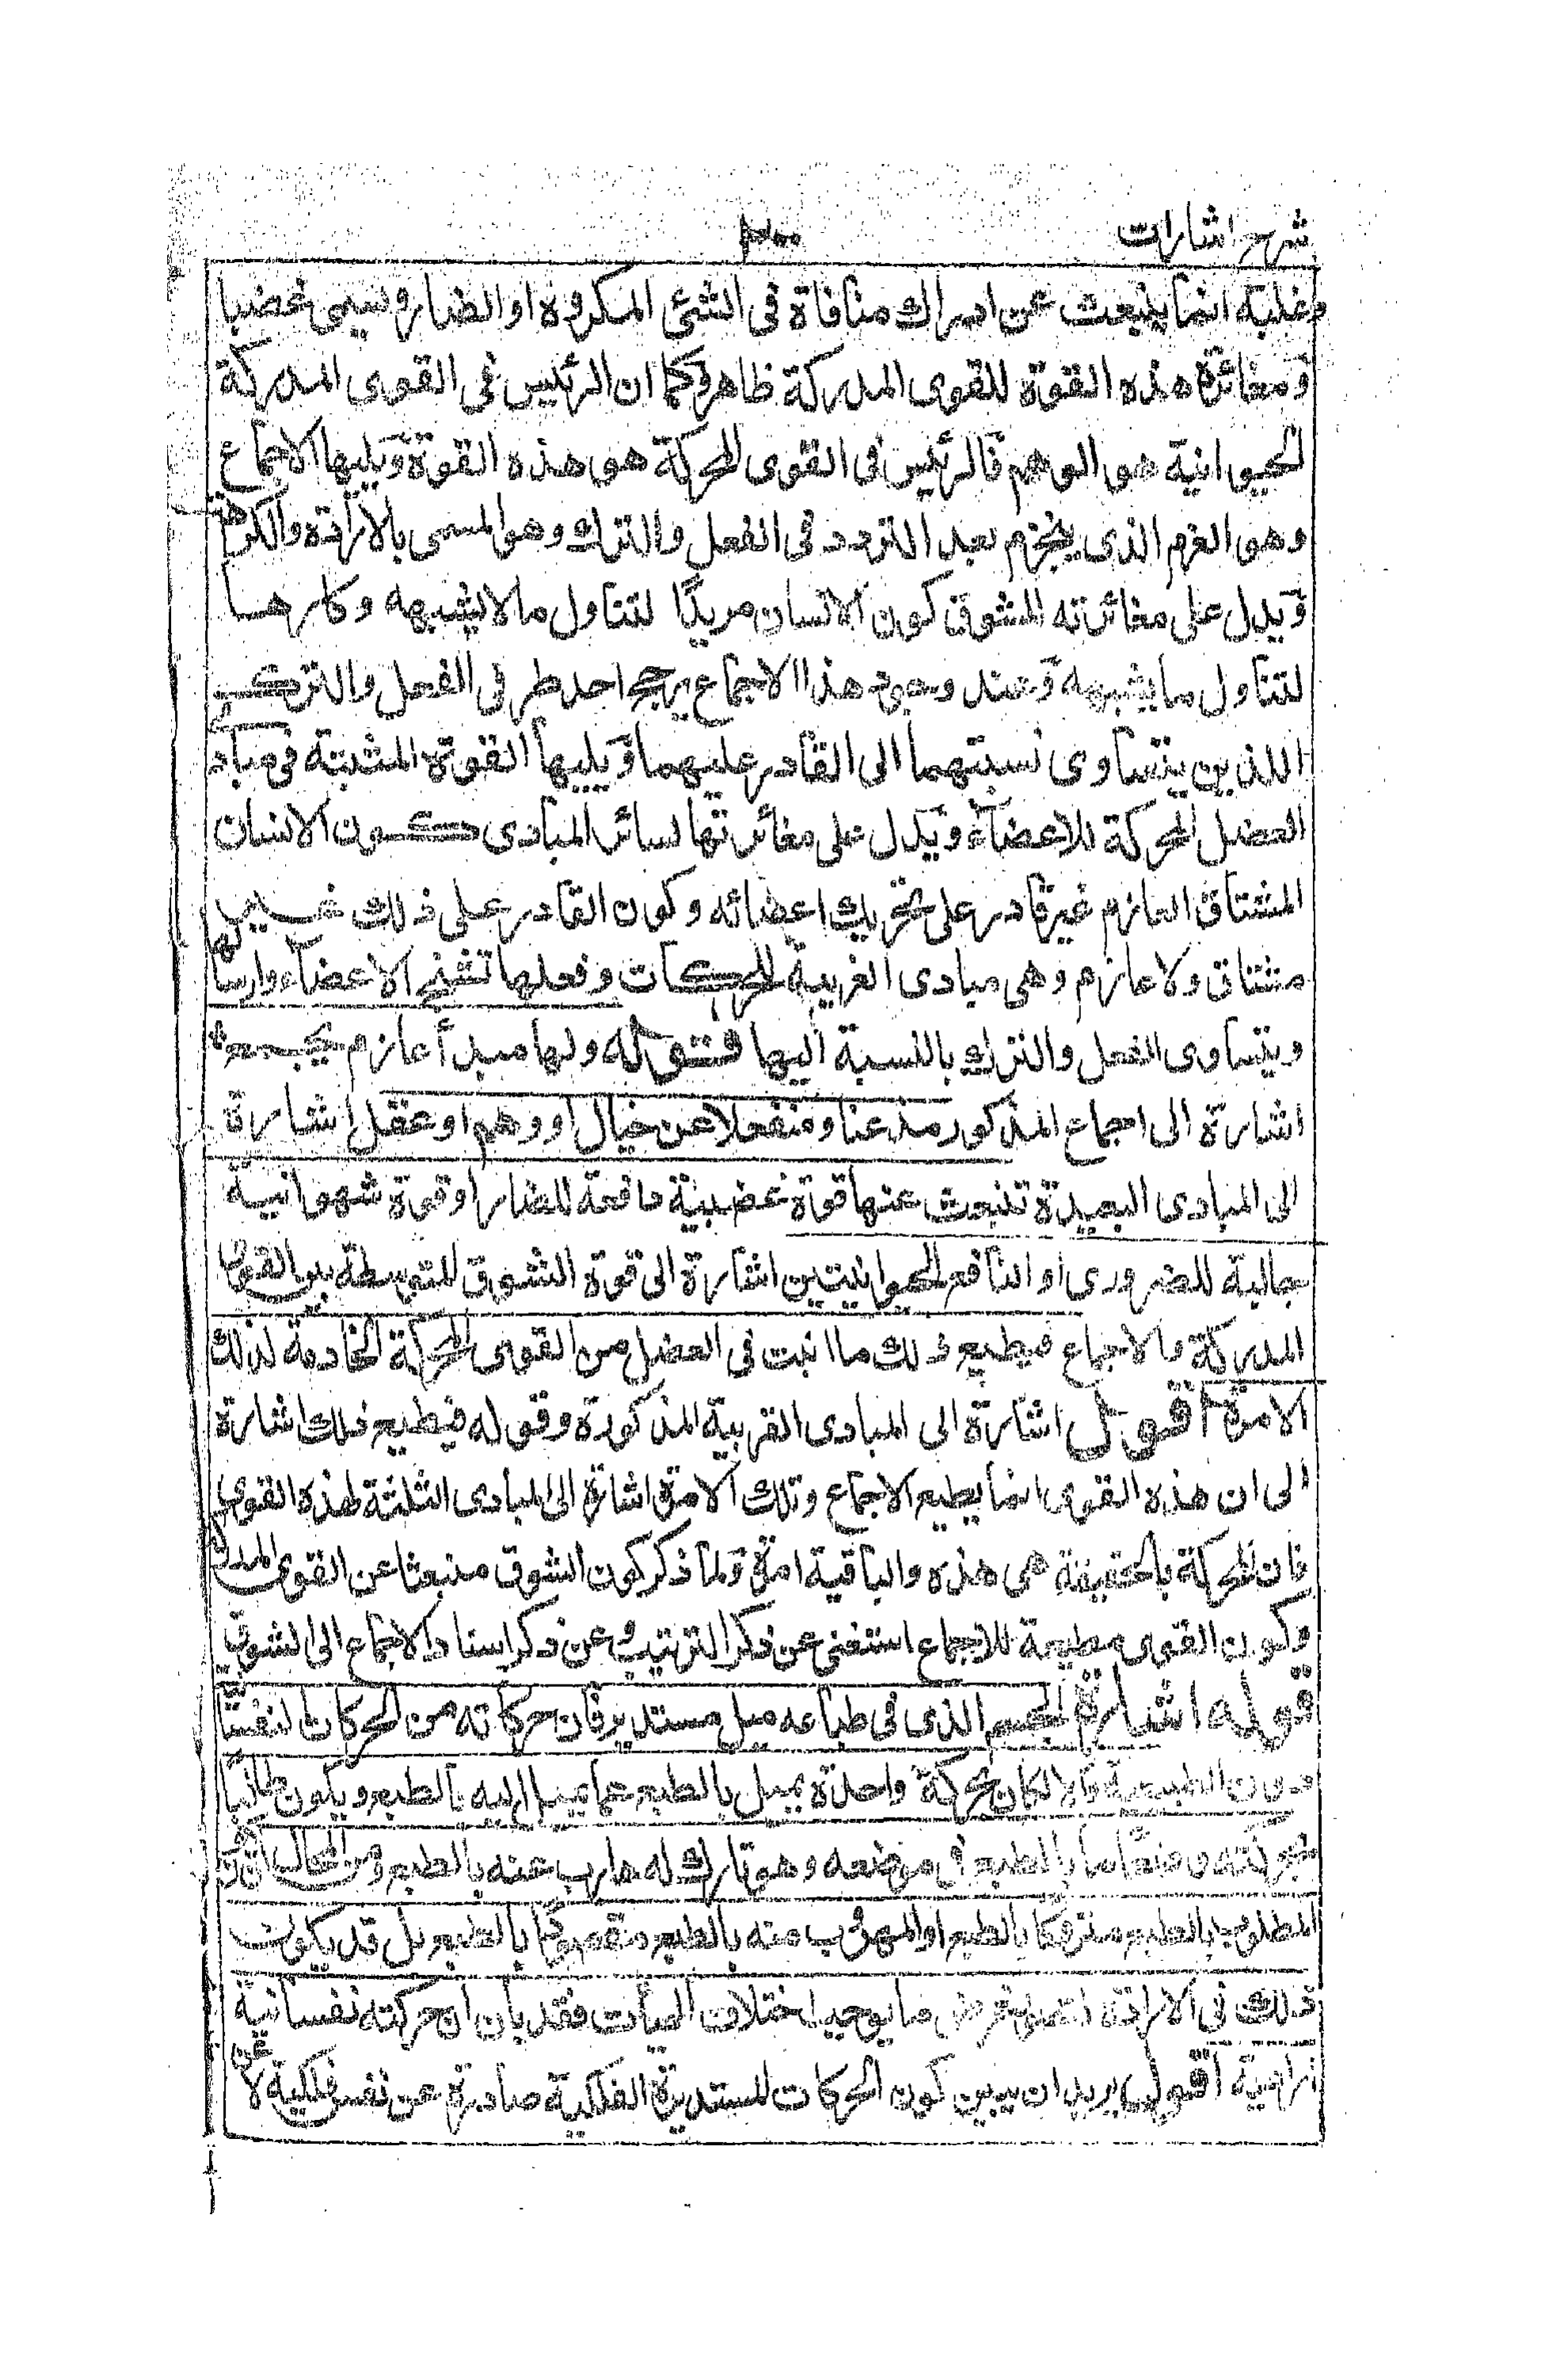 شرح اشارات
وغلبة انما ينبعث عن ادراك منافاة فى الشئ المكروه او الضار وسيمى غضبا
ومغائرة هذه القوة للقوى المدركة ظاهرة وكما ان الرئيس فى القوى المدركة
الحيوانية هو الوهم فالرئيس فى القوى المحركة هو هذه القوة ويليها الاجماع
وهو العزم الذى ينجزم بعد التردد فى الفعل والترك وهو المسمى بالارادة والكراهة
ويدل على مغائرته للشوق كون الانسان مريدا لتناول ما لا يشتهيه وكارها
لتناول ما يشتهيه وعند وجود هذا الاجماع يرجح احد طرفى الفعل والترك
اللذين يتساوى نسبتهما الى القادر عليهما ويليها القوة المنبثة فى مبادى
العضل المحركة للاعضاء ويدل على مغائرتها لسائر المبادى كون الانسان
المشتاق العازم غير قادر على تحريك اعضائه وكون القادر على ذلك غير
مشتاق ولا عازم وهى مبادى القريبة للحركات وفعلها تشنج الاعضاء وارسالها
ويتساوى الفعل والترك بالنسبة اليها فقوله ولها مبدأ عازم مجمع
اشارة الى اجماع المذكور مذعنا ومنفعلا عن خيال او وهم او عقل اشارة
الى المبادى البعيدة تنبعث عنها قوة غضبية دافعة للضار او قوة شهوانية
جالبة للضرورى او النافع الحيوانيتين اشارة الى قوة الشوق المتوسطة بين القوى
المدركة والاجماع فيطيع ذلك ما انبث فى العضل من القوى المحركة الخادمة لذلك
الامرة اقول اشارة الى المبادى القريبة المذكورة وقوله فيطيع ذلك اشارة
الى ان هذه القوى انما يطيع الاجماع وتلك الامرة اشارة الى المبادى الثلثة لهذه القوى
فان المحركة بالحقيقة هى هذه والباقية امرة ولما ذكر كون الشوق منبعثا عن القوى المدركة
وكون القوى مطيعة للاجماع استغنى عن ذكر الترتيب وعن ذكر اسناد الاجماع الى الشوق
قوله اشارة الجسم الذى فى طباعه ميل مستدير فان حركاته من الحركات النفسانية
دون الطبيعية والا لكان بحركة واحدة يميل بالطبع عما يميل اليه بالطبع ويكون طالبا
بحركته وضعا ما بالطبع فى موضعه وهو تارك له هارب عنه بالطبع ومن المحال ان يكون
المطلوب بالطبع متروكا بالطبع او المهروب منه بالطبع مقصودا بالطبع بل قد يكون
ذلك فى الارادة لتصور غرض ما يوجب اختلاف الهيآت فقد بان ان حركته نفسانية
ارادية اقول يريد ان يبين كون الحركات المستديرة الفلكية صادرة عن نفس فلكية لا عن